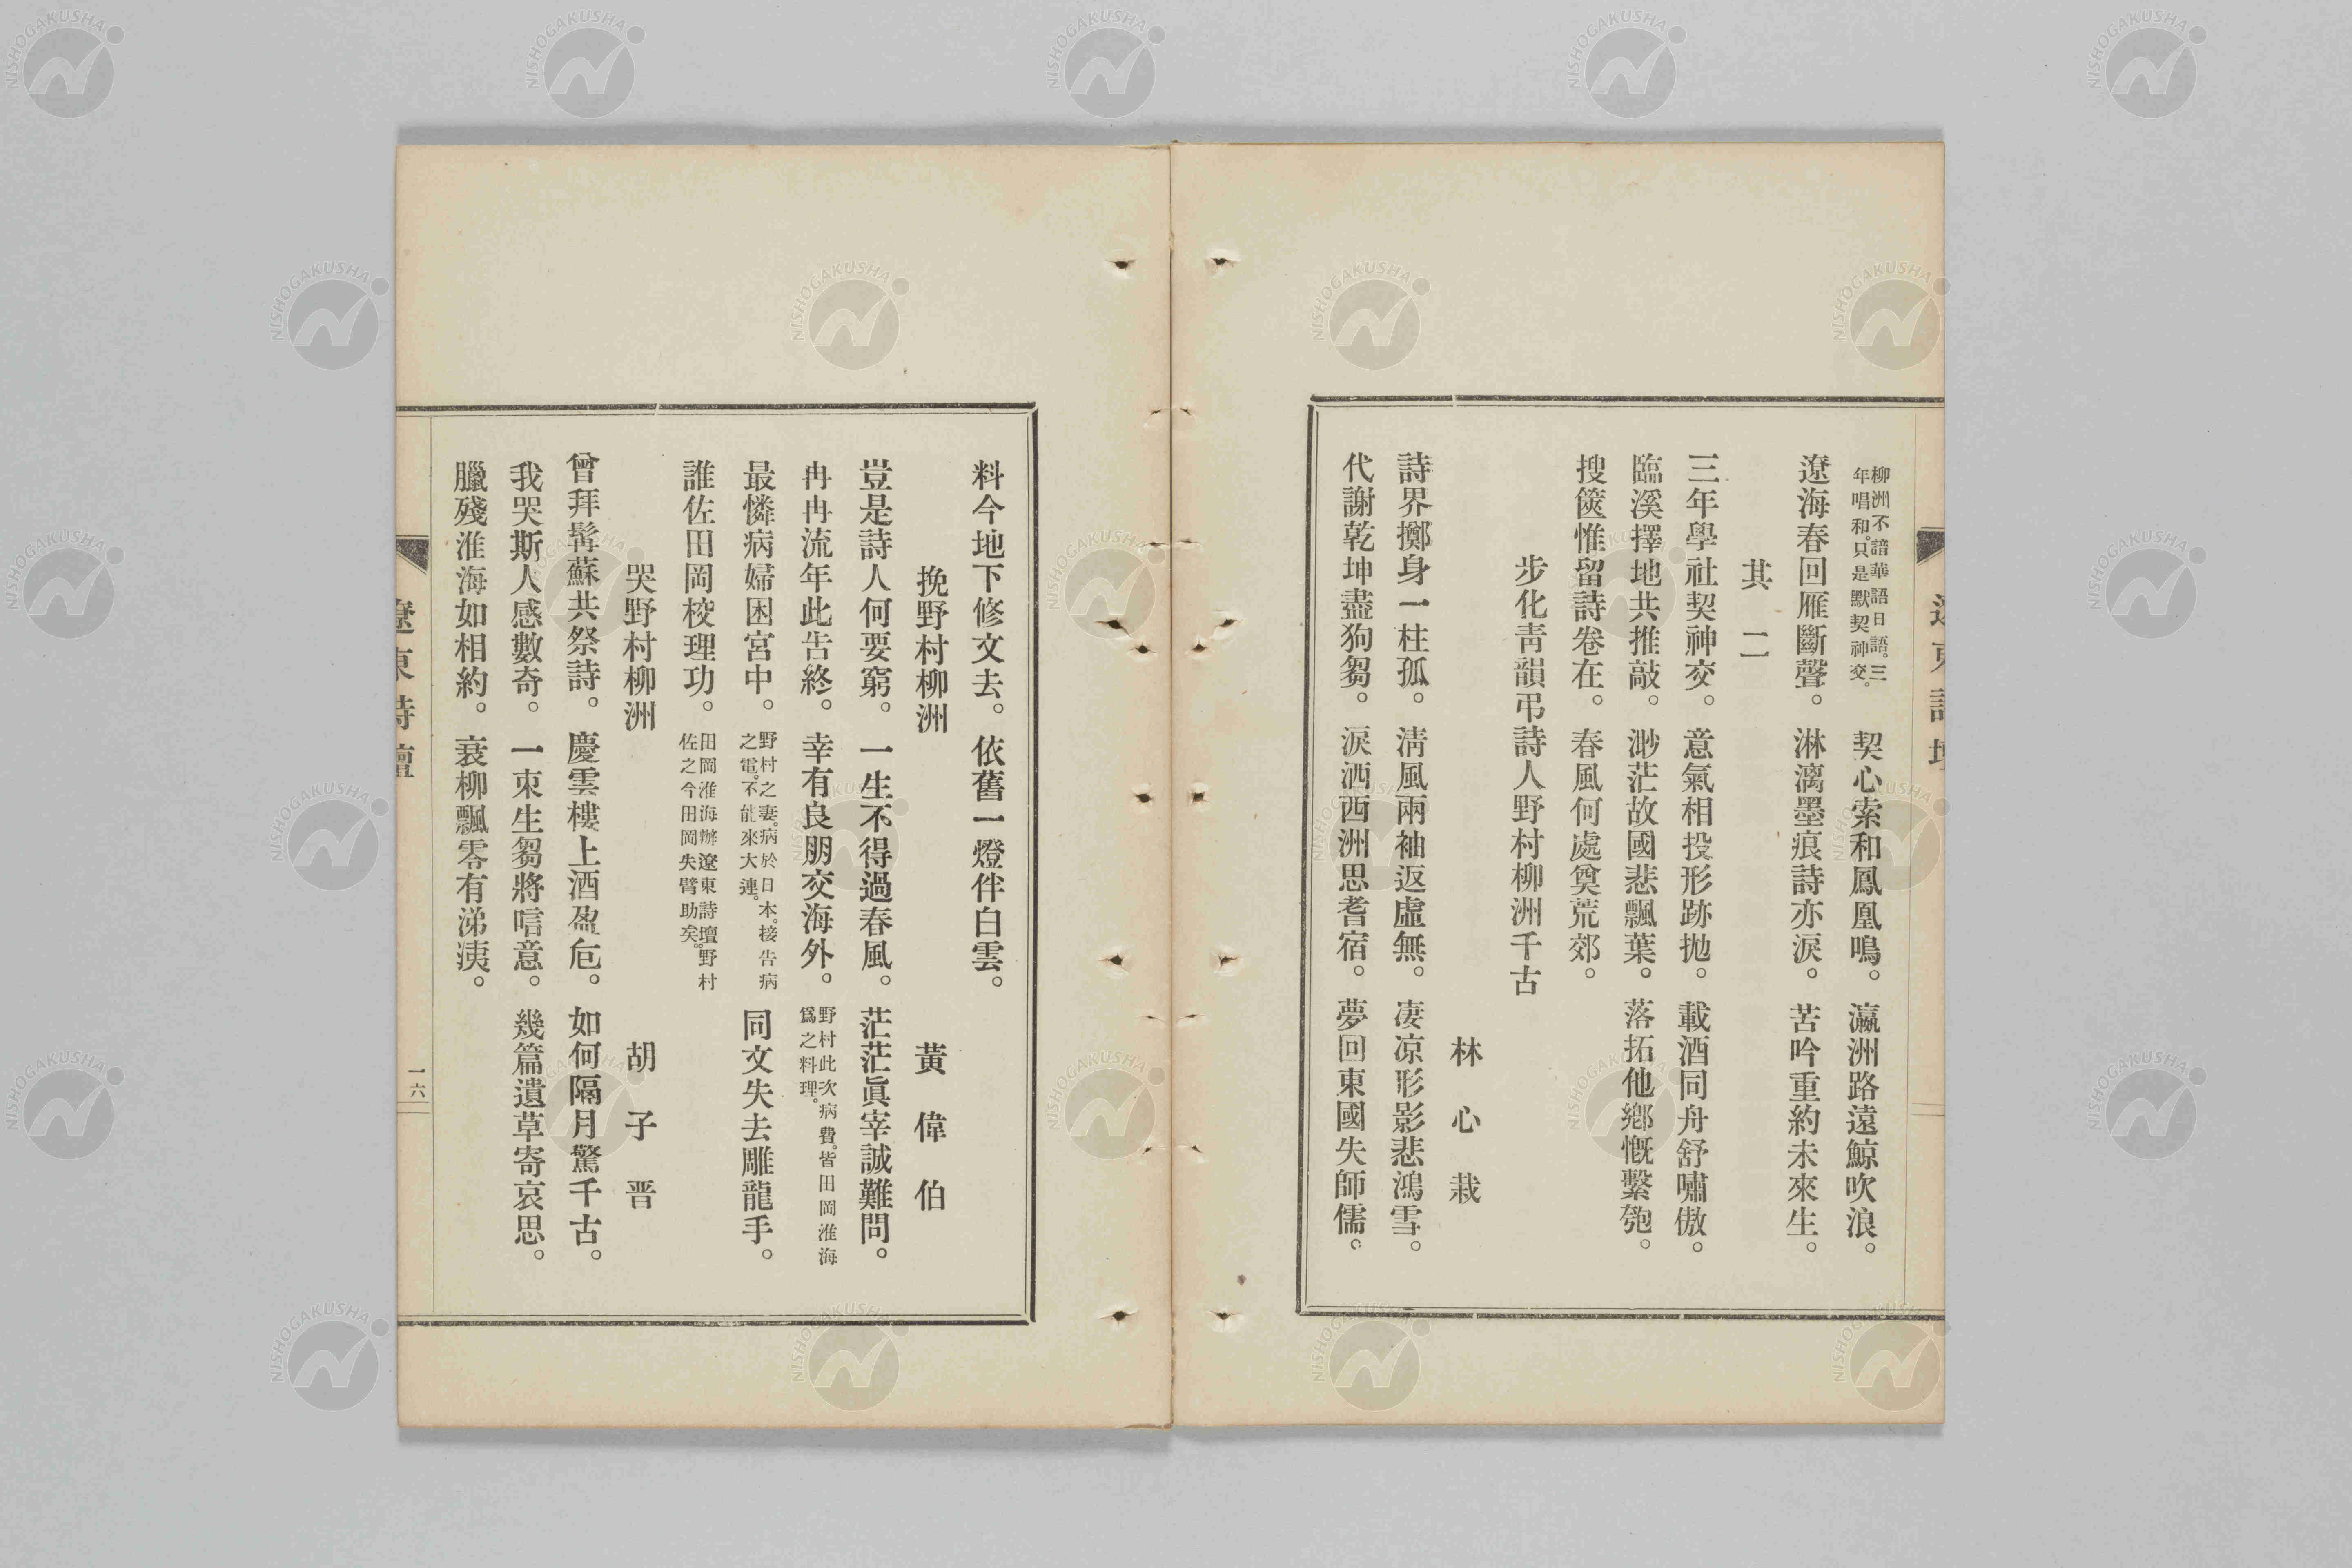 遼東詩壇
柳洲不諳華語日語。三
年唱和。只是默契神交。
契心索和鳳凰鳴。瀛洲路遠鯨吹浪。
遼海春回雁斷聲。淋漓墨痕詩亦淚。苦吟重約未來生。
其二
三年學社契神交。意氣相投形跡拋。載酒同舟舒嘯傲。
臨溪擇地共推敲。渺茫故國悲飄葉。落拓他鄉慨繫匏。
搜篋惟留詩卷在。春風何處奠荒郊。
步化靑韻弔詩人野村柳洲千古
林心栽
詩界擲身一柱孤。淸風兩袖返虛無。凄凉形影悲鴻雪。
代謝乾坤盡狗芻。淚洒西洲思耆宿。夢回東國失師儒。
料今地下修文去。依舊一燈伴白雲。
挽野村柳洲
黃偉伯
豈是詩人何要窮。一生不得過春風。茫茫眞宰誠難問。
冉冉流年此吿終。幸有良朋交海外。
野村此次病費。皆田岡淮海
爲之料理。
最憐病婦困宮中。
野村之妻。病於日本。接吿病
之電。不能來大連。
同文失去雕龍手。
誰佐田岡校理功。
田岡淮海辦遼東詩壇。野村
佐之今田岡失臂助矣。
哭野村柳洲
胡子晋
曾拜髯蘇共祭詩。慶雲樓上酒盈卮。如何隔月驚千古。
我哭斯人感數奇。一束生芻將唁意。幾篇遺草寄哀思。
臘殘淮海如相約。衰柳飄零有涕洟。
遼東詩壇
一六
NISHOGAKUSHA